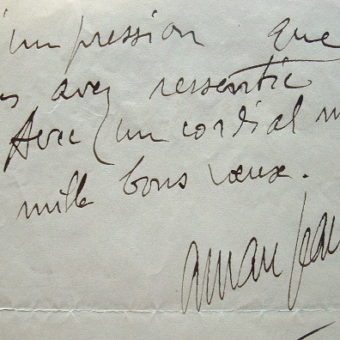 l'impression que
avez ressentie
Avec un cordial m
mille bons vœux.
aman Jean